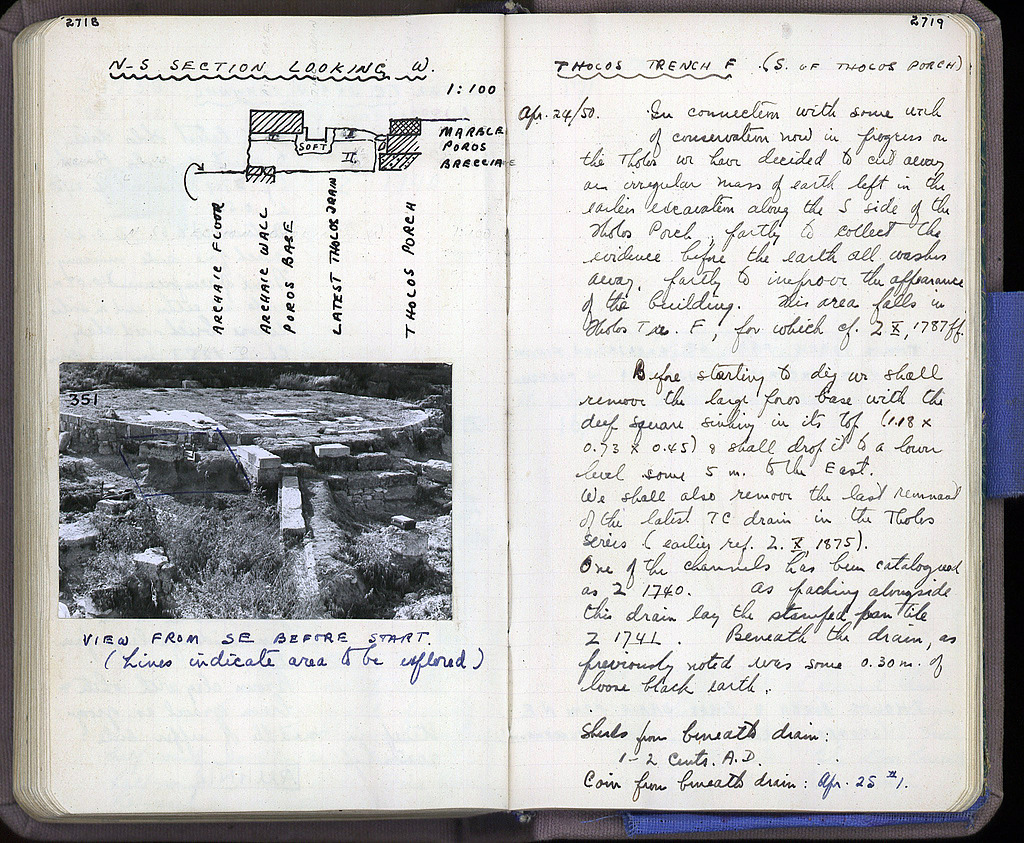 2718
N-S SECTION LOOKING W.
1:100
MARBLE
POROS
BRECCIA
I
II
SOFT
II
ARCHAIC FLOOR
ARCHAIC WALL
POROS BASE
LATEST THOLOS DRAIN
THOLOS PORCH
351
VIEW FROM SE BEFORE START.
(Lines indicate area to be explored)
2719
THOLOS TRENCH F (S. OF THOLOS PORCH)
Apr. 24/50. In connection with some work
of conservation now in progress on
the Tholos we have decided to cut away
an irregular mass of earth left in the
earlier excavation along the S side of the
Tholos Porch, partly to collect the
evidence before the earth all washes
away, partly to improve the appearance
of the building. This area falls in
Tholos Tre. F, for which cf. Z X, 1787 ff.
Before starting to dig we shall
remove the large poros base with the
deep square sinking in its top (1.18 x
0.73 x 0.45) & shall drop it to a lower
level some 5 m. to the East.
We shall also remove the last remnant
of the latest TC drain in the Tholos
series (earlier ref. Z. X, 1875).
One of the channels has been catalogued
as Z 1740. As packing alongside
this drain lay the stamped pan tile
Z 1741. Beneath the drain, as
previously noted was some 0.30 m. of
loose black earth.
Sherds from beneath drain:
1-2 cents. A.D.
Coin from beneath drain: Apr. 25 #1.